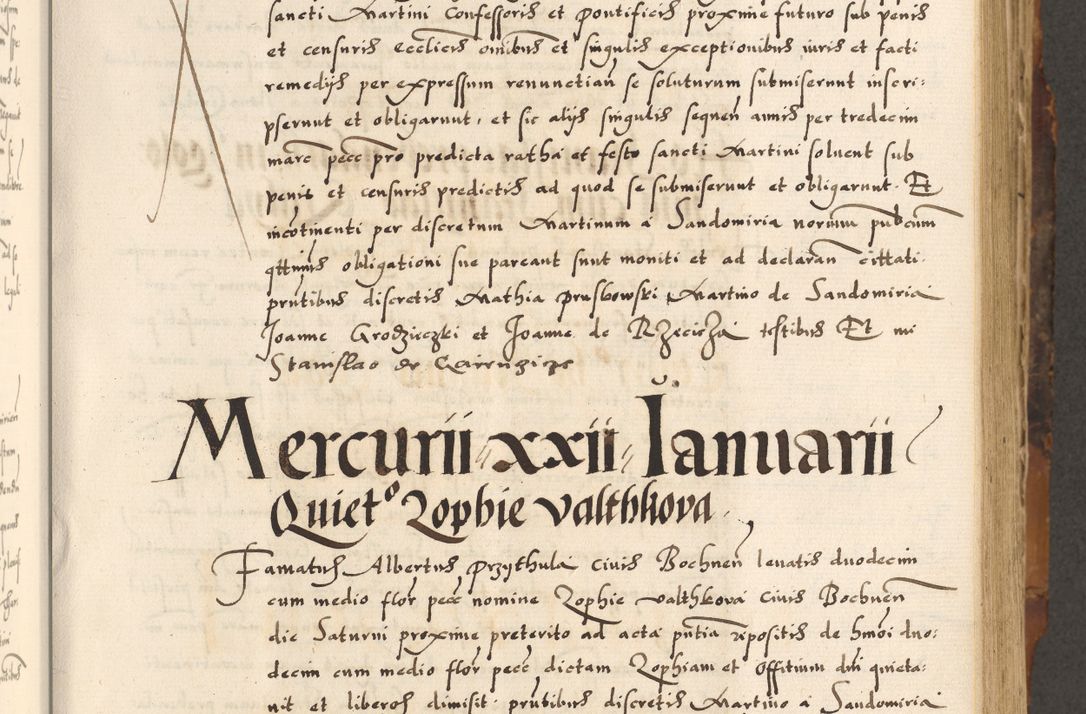 sancti Martini Confessoris et pontificis proxime futuro sub penis
et censuris ecclicis omibus et singulis exceptionibus iuris et facti
remedijs per expressum renunctian se soluturum submiserunt inscri:
pserunt et obligarunt, et sic alijs singulis sequen annis per tredecim
marc pecc pro predicta ratha et festo sancti Martini solvent sub
penis et censuris predictis ad quod se submiserunt et obligarunt. Et
incotinenti per discretum Martinum a Sandomiria norium pubcum
qttinus obligationi sue pareant sunt moniti et ad declaran cittati.
pntibus discretis Mathia prusbowski Martino de Sandomiria
Joanne Grodzieczki et Joanne de Rzeciza testibus Et me
Stanislao de
Mercurii xxii Ianuarii
Quiet⁰ Zophie valthkova
Famatus Albertus Przythula civis Bochnen levatis duodecim
cum medio flor pecc nomine Zophie valthkova civis Bochnen
die Saturni proxime preterito ad acta pntia repositis de hmoi duo:
decim cum medio flor pecc dictam Zophiam et officium dni quieta:
vit et liberos dimisit. pntibus discretis Martino a Sandomiria